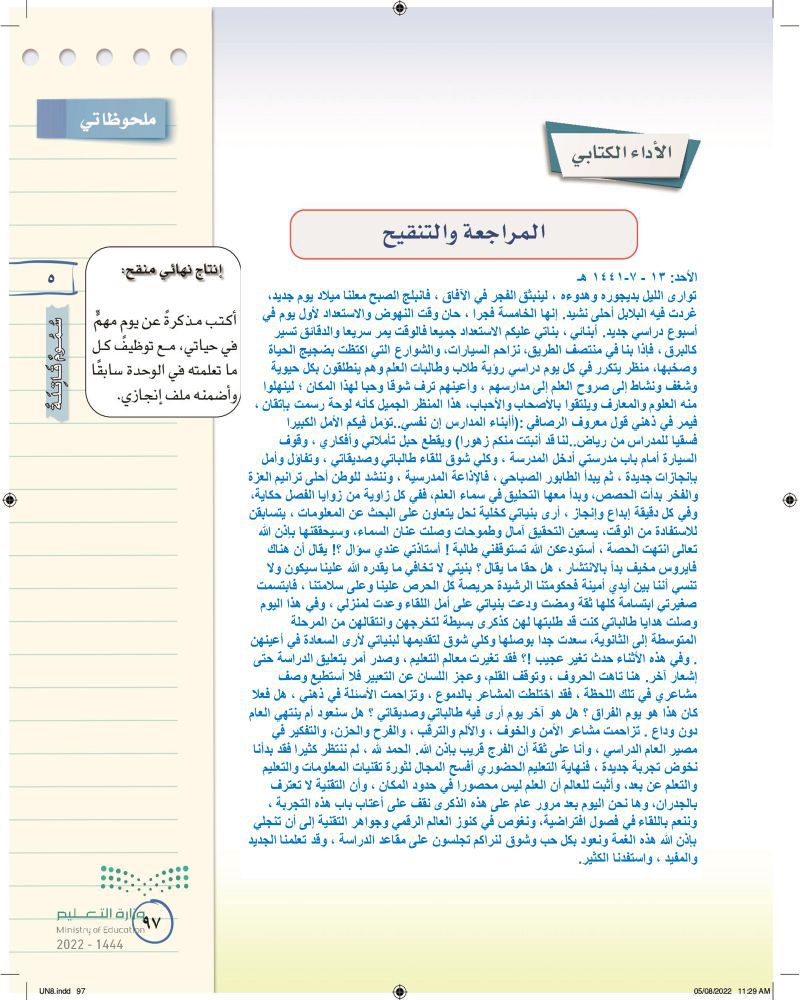 ملحوظاتي
الأداء الكتابي
المراجعة والتنقيح
إنتاج نهائي منقح:
أكتب مذكرةً عن يوم مهمٍّ
في حياتي، مع توظيف كل
ما تعلمته في الوحدة سابقًا
وأضمنه ملف إنجازي.
٥
الأحد: ١٣ - ٧-١٤٤١ هـ
توارى الليل بديجوره وهدوءه ، لينبثق الفجر في الآفاق ، فانبلج الصبح معلنا ميلاد يوم جديد،
غردت فيه البلابل أحلى نشيد. إنها الخامسة فجرا ، حان وقت النهوض والاستعداد لأول يوم في
أسبوع دراسي جديد. أبنائي ، بناتي عليكم الاستعداد جميعا فالوقت يمر سريعا والدقائق تسير
كالبرق ، فإذا بنا في منتصف الطريق، تزاحم السيارات، والشوارع التي اكتظت بضجيج الحياة
وصخبها، منظر يتكرر في كل يوم دراسي رؤية طلاب وطالبات العلم وهم ينطلقون بكل حيوية
وشغف ونشاط إلى صروح العلم إلى مدارسهم ، وأعينهم ترف شوقا وحبا لهذا المكان ؛ لينهلوا
منه العلوم والمعارف ويلتقوا بالأصحاب والأحباب، هذا المنظر الجميل كأنه لوحة رسمت بإتقان ،
فيمر في ذهني قول معروف الرصافي :(أأبناء المدارس إن نفسي..تؤمل فيكم الأمل الكبيرا
فسقيا للمدراس من رياض..لنا قد أنبتت منكم زهورا) ويقطع حبل تأملاتي وأفكاري ، وقوف
السيارة أمام باب مدرستي أدخل المدرسة ، وكلي شوق للقاء طالباتي وصديقاتي ، وتفاؤل وأمل
بإنجازات جديدة ، ثم يبدأ الطابور الصباحي ، فالإذاعة المدرسية ، وننشد للوطن أحلى ترانيم العزة
والفخر بدأت الحصص، وبدأ معها التحليق في سماء العلم، ففي كل زاوية من زوايا الفصل حكاية،
وفي كل دقيقة إبداع وإنجاز ، أرى بنياتي كخلية نحل يتعاون على البحث عن المعلومات ، يتسابقن
للاستفادة من الوقت، يسعين لتحقيق آمال وطموحات وصلت عنان السماء، وسيحققنها بإذن الله
تعالى انتهت الحصة ، أستودعكن الله تستوقفني طالبة ! أستاذتي عندي سؤال ؟! يقال أن هناك
فايروس مخيف بدأ بالانتشار ، هل حقا ما يقال ؟ بنيتي لا تخافي ما يقدره الله علينا سيكون ولا
تنسي أننا بين أيدي أمينة فحكومتنا الرشيدة حريصة كل الحرص علينا وعلى سلامتنا ، فابتسمت
صغيرتي ابتسامة كلها ثقة ومضت ودعت بنياتي على أمل اللقاء وعدت لمنزلي ، وفي هذا اليوم
وصلت هدايا طالباتي كنت قد طلبتها لهن كذكرى بسيطة لتخرجهن وانتقالهن من المرحلة
المتوسطة إلى الثانوية، سعدت جدا بوصلها وكلي شوق لتقديمها لبنياتي لأرى السعادة في أعينهن
. وفي هذه الأثناء حدث تغير عجيب !؟ فقد تغيرت معالم التعليم ، وصدر أمر بتعليق الدراسة حتى
إشعار آخر. هنا تاهت الحروف ، وتوقف القلم، وعجز اللسان عن التعبير فلا أستطيع وصف
مشاعري في تلك اللحظة ، فقد اختلطت المشاعر بالدموع ، وتزاحمت الأسئلة في ذهني ، هل فعلا
كان هذا هو يوم الفراق ؟ هل هو آخر يوم أرى فيه طالباتي وصديقاتي ؟ هل سنعود أم ينتهي العام
دون وداع . تزاحمت مشاعر الأمن والخوف ، والألم والترقب ، والفرح والحزن، والتفكير في
مصير العام الدراسي ، وأنا على ثقة أن الفرج قريب بإذن الله. الحمد لله ، لم ننتظر كثيرا فقد بدأنا
نخوض تجربة جديدة ، فنهاية التعليم الحضوري أفسح المجال لثورة تقنيات المعلومات والتعليم
والتعلم عن بعد، وأثبت للعالم أن العلم ليس محصورا في حدود المكان ، وأن التقنية لا تعترف
بالجدران، وها نحن اليوم بعد مرور عام على هذه الذكرى نقف على أعتاب باب هذه التجربة ،
وننعم باللقاء في فصول افتراضية، ونغوص في كنوز العالم الرقمي وجواهر التقنية إلى أن تنجلي
بإذن الله هذه الغمة ونعود بكل حب وشوق لنراكم تجلسون على مقاعد الدراسة ، وقد تعلمنا الجديد
والمفيد ، واستفدنا الكثير.
وزارة التعـليم
Ministry of Education
2022 - 1444
٩٧
UN8.indd 97
05/08/2022 11:29 AM